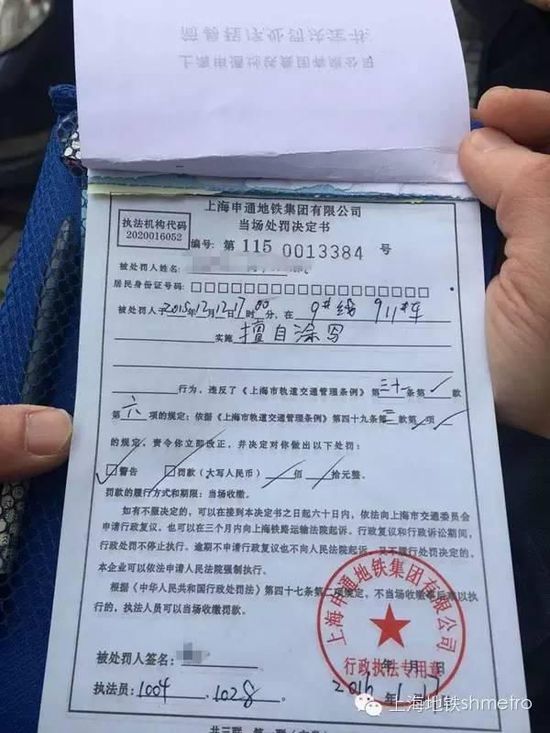 简易程序处罚决定书
上海申通地铁集团有限公司
上海申通地铁集团有限公司
当场处罚决定书
执法机构代码
2020016052
编号: 第 115 0013384 号
被处罚人姓名:
居民身份证号码: □□□□□□□□□□□□□□□□□□
被处罚人于2015年12月12日17时00分, 在 9#线 911#车
实施 擅自涂写
行为, 违反了《上海市轨道交通管理条例》三十一条第 款
第六项的规定; 依据《上海市轨道交通管理条例》第四十九条第三款第 项
的规定, 责令你立即改正, 并决定对你做出以下处罚:
☑警告 □罚款 (大写人民币) 佰 拾元整。
罚款的履行方式和期限: 当场收缴。
如有不服决定的, 可以在接到本决定书之日起六十日内, 依法向上海市交通委员会
申请行政复议, 也可以在三个月内向上海铁路运输法院起诉。行政复议和行政诉讼期间,
行政处罚不停止执行。逾期不申请行政复议也不向人民法院起诉, 又不履行处罚决定的,
本企业可以依法申请人民法院强制执行。
根据《中华人民共和国行政处罚法》第四十七条第二项规定, 不当场收缴事后难以执
行的, 执法人员可以当场收缴罚款。
上海申通地铁集团有限公司
行政执法专用章
被处罚人签名:
年 月 日
执法员: 1004 . 1028
2016 1 17
上海地铁shmetro